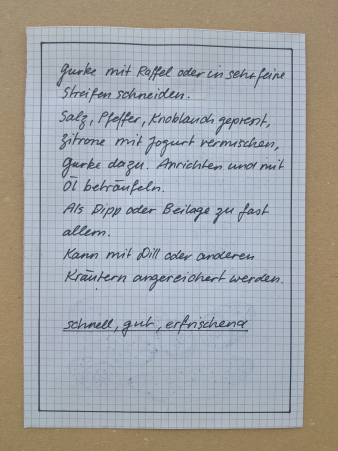 Gurke mit Raffel oder in sehr feine
Streifen schneiden.
Salz, Pfeffer, Knoblauch gepresst,
Zitrone mit Jogurt vermischen,
Gurke dazu. Anrichten und mit
Öl beträufeln.
Als Dipp oder Beilage zu fast
allem.
Kann mit Dill oder anderen
Kräutern angereichert werden.
schnell, gut, erfrischend